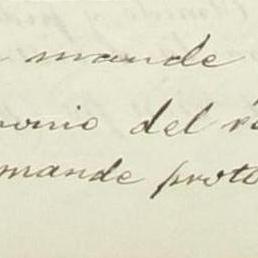 mande
onio del
mande proto